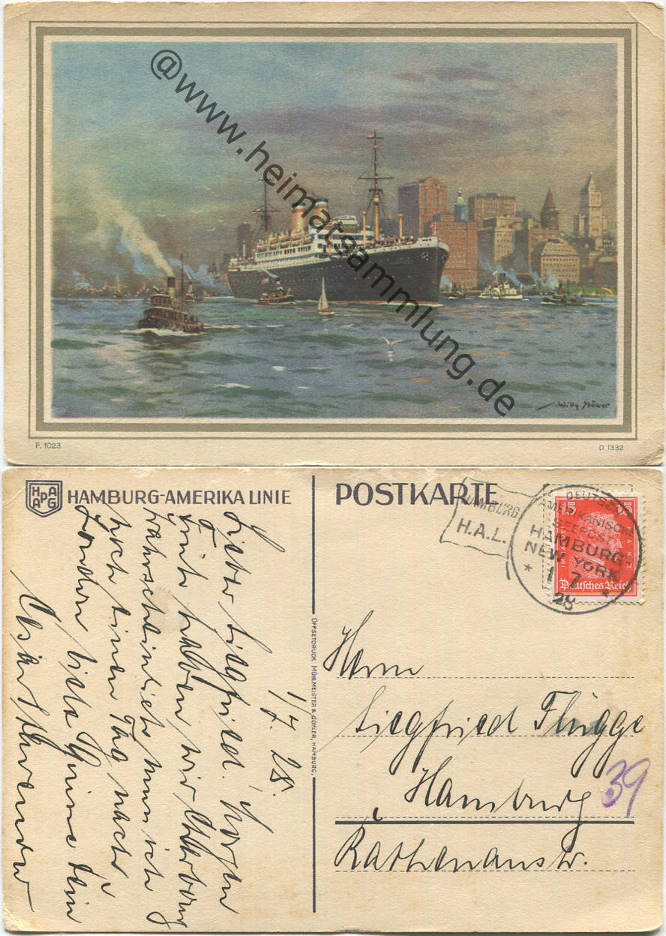 @www.heimatsammlung.de
Willy Stöwer
F. 1023
D. 1332
HAPAG
HAMBURG-AMERIKA LINIE
POSTKARTE
HAMBURG
H.A.L.
DEUTSCH-
AMERIKANISCHE
SEEPOST
HAMBURG-
NEW YORK
* 1.7.
28
15
Deutsches Reich
OFFSETDRUCK MÜHLMEISTER & JOHLER, HAMBURG.
1/7. 28.
Lieber Siegfried! Morgen
früh haben wir Cherbourg
wahrscheinlich muss ich
noch einen Tag nach
London viele Grüsse Dein
Herrn
Siegfried Flügge
Hamburg 39
Rathenaustr.